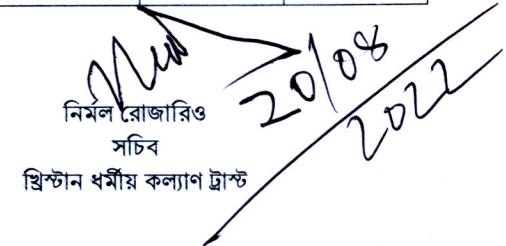 20/08
2022
নির্মল রোজারিও
সচিব
খ্রিস্টান ধর্মীয় কল্যাণ ট্রাস্ট